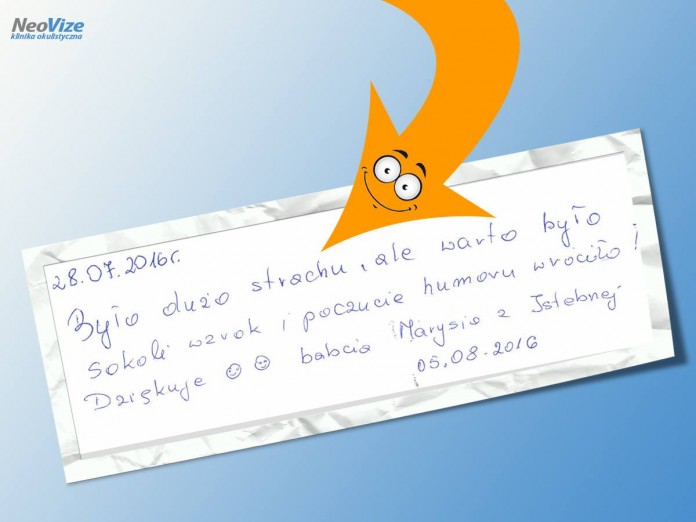 NeoVize
klinika okulistyczna
28.07.2016r.
Było dużo strachu, ale warto było
Sokoli wzrok i poczucie humoru wróciło!
Dziękuje ☺ ☺ babcia Marysia z Istebnej
05.08.2016